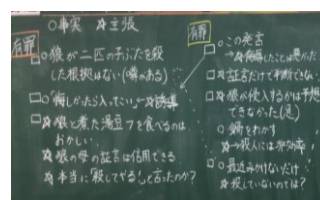 ○事実 ☆主張
有罪
□○狼が二匹の子ぶたを殺
した根拠はない(噂がある)
□○「悔しかったら入ってこい」→☆誘導
□☆狼と煮た湯豆フを食べるのは
おかしい
☆狼の母の証言は信用できる
☆本当に「殺してやる」と言ったのか?
有罪
□○この発言
したことは悪かった
□☆証言だけで判断できない
□☆狼が侵入するかは予想
できなかった
○鍋をわかす
→☆殺人には非効率
□○最近みかけないだけ
☆殺していないのでは?